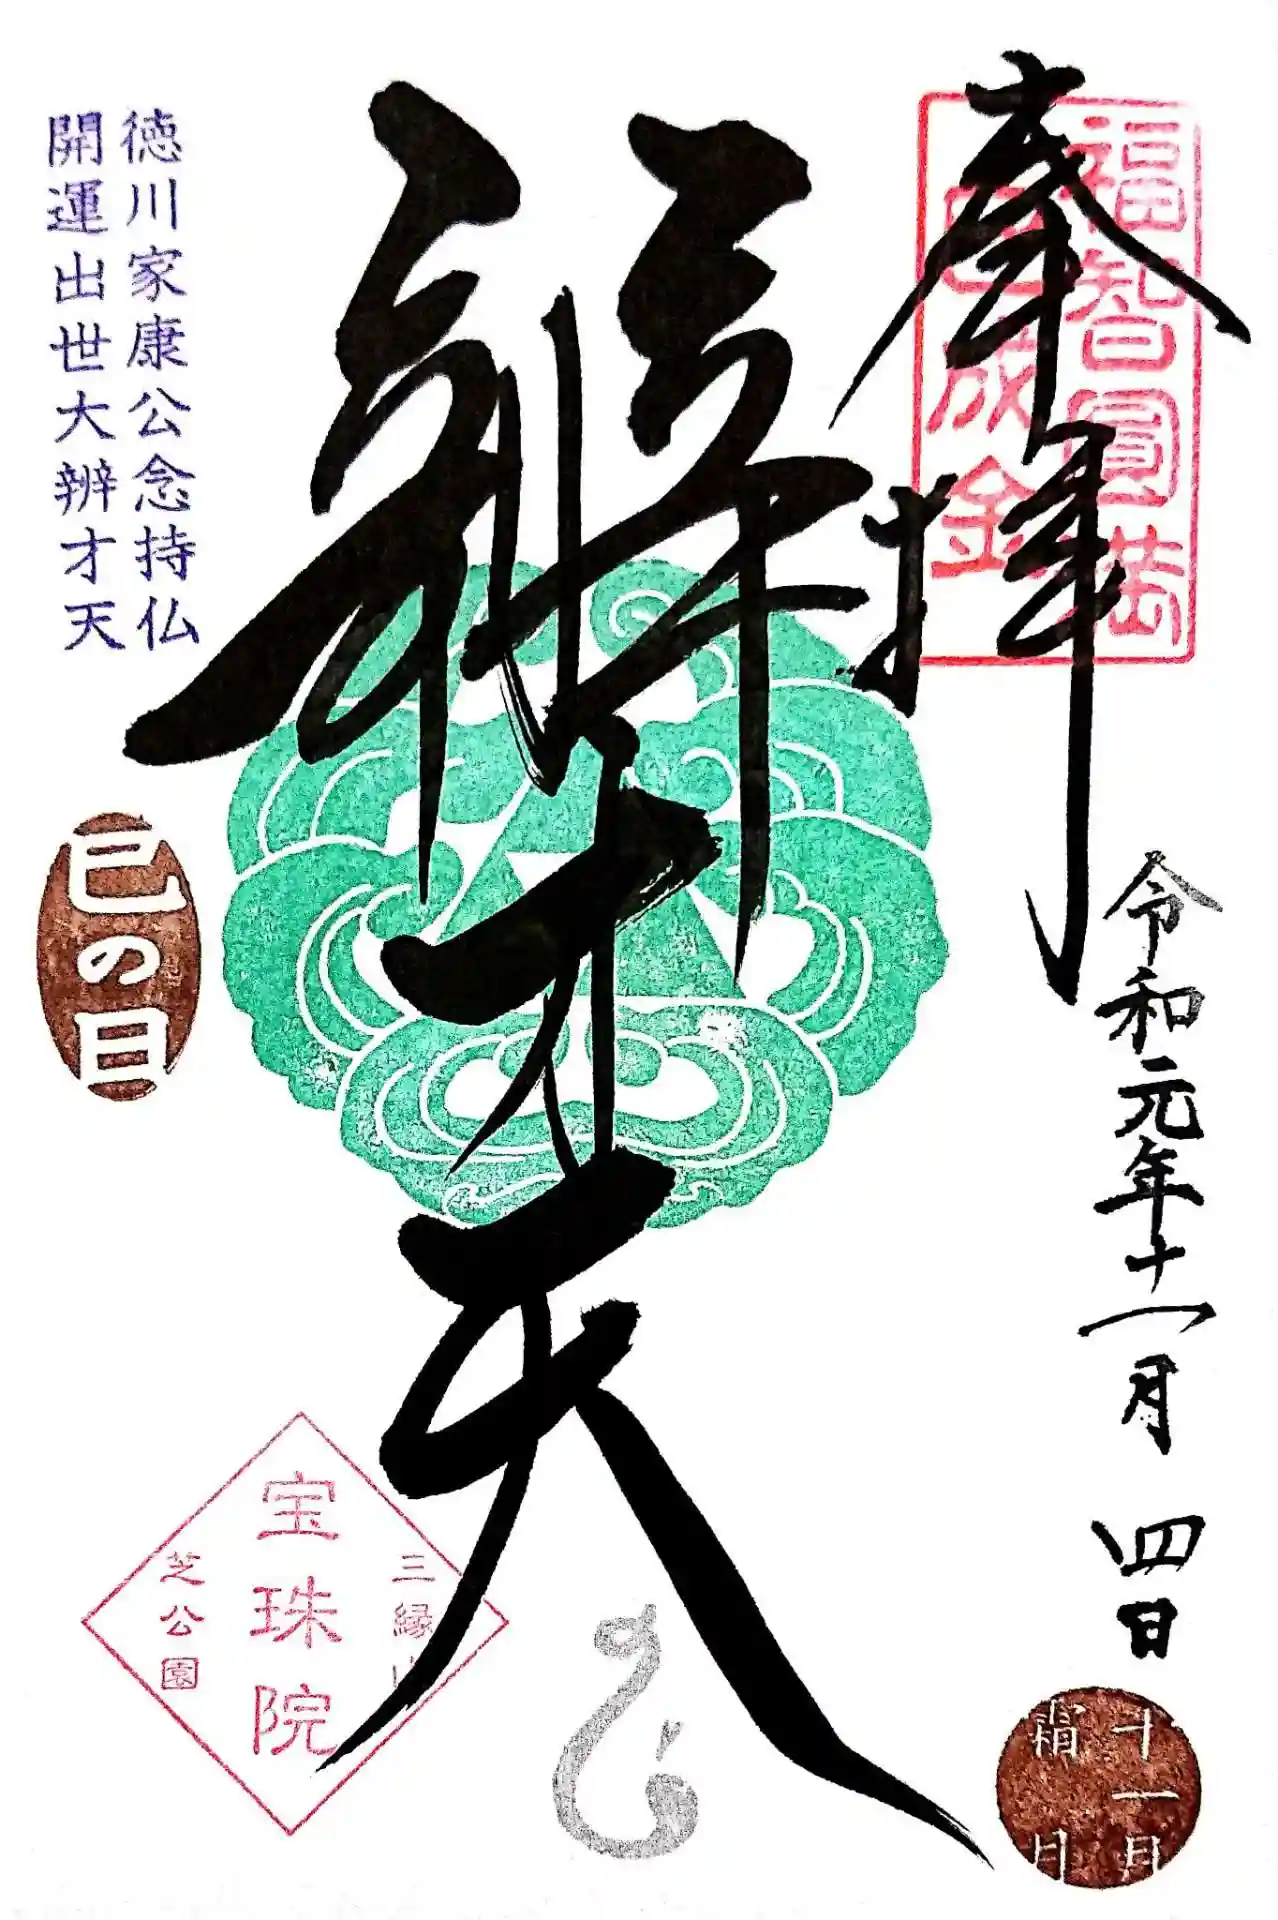 奉拝
福智圓満
成金
令和元年十一月 四日
十一月
霜月
辨才天
徳川家康公念持仏
開運出世大辨才天
巳の日
三縁山
宝珠院
芝公園